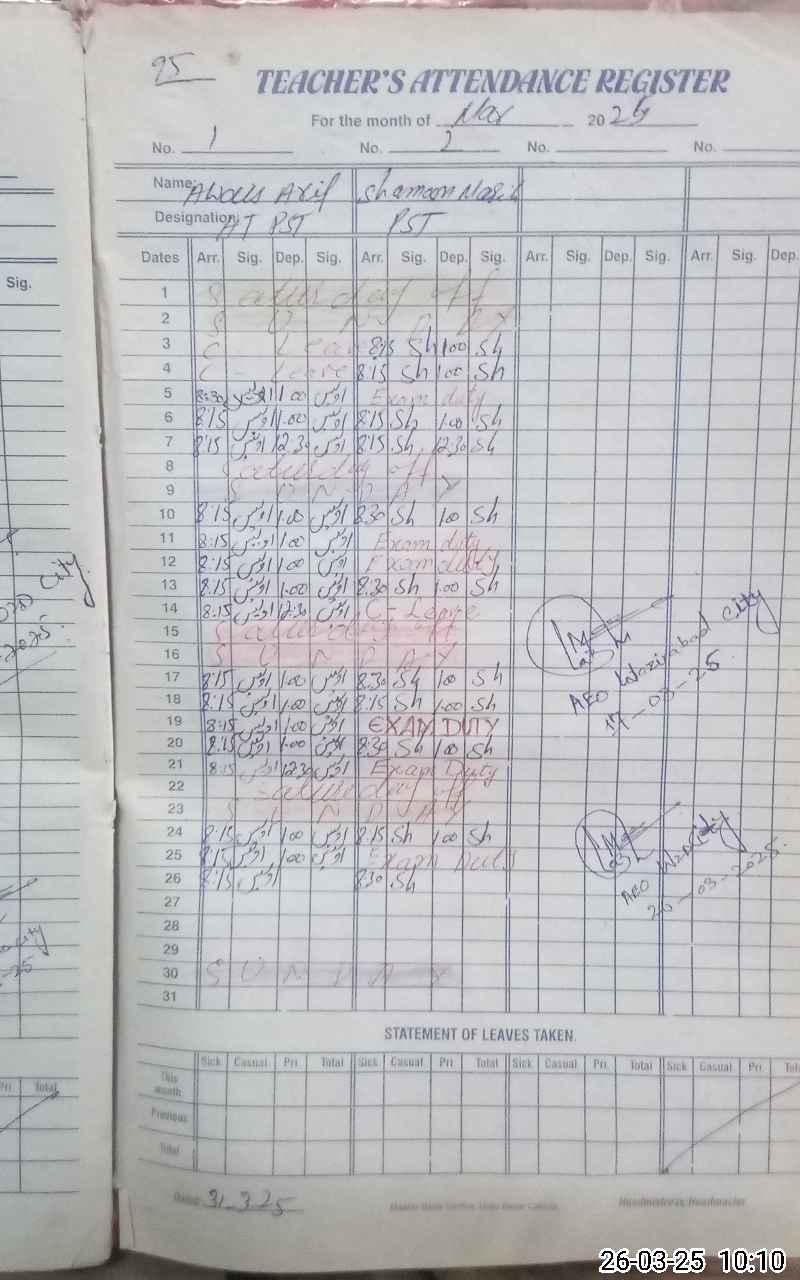 95
TEACHER'S ATTENDANCE REGISTER
For the month of Mar 2025
No. 1 No. 2 No. No.
Name: Awais Arif Shamoon Nasir
Designation: AT PST PST
Sig. Dates Arr. Sig. Dep. Sig. Arr. Sig. Dep. Sig. Arr. Sig. Dep. Sig. Arr. Sig. Dep.
1 Saturday off
2 S U N D A Y
3 C - Leave 8:15 Sh 1:00 Sh
4 C - Leave 8:15 Sh 1:00 Sh
5 8:30 اویس 1:00 اویس Exam duty
6 8:15 اویس 1:00 اویس 8:15 Sh 1:00 Sh
7 8:15 اویس 12:30 اویس 8:15 Sh 12:30 Sh
8 Saturday off
9 S U N D A Y
10 8:15 اویس 1:00 اویس 8:30 Sh 1:00 Sh
11 8:15 اویس 1:00 اویس Exam duty
12 8:15 اویس 1:00 اویس Exam duty
13 8:15 اویس 1:00 اویس 8:30 Sh 1:00 Sh
14 8:15 اویس 12:30 اویس C - Leave
15 Saturday off
16 S U N D A Y
17 8:15 اویس 1:00 اویس 8:30 Sh 1:00 Sh
AEO Wazirabad City
17-03-25
18 8:15 اویس 1:00 اویس 8:15 Sh 1:00 Sh
19 8:15 اویس 1:00 اویس EXAM DUTY
20 8:15 اویس 1:00 اویس 8:30 Sh 1:00 Sh
21 8:15 اویس 12:30 اویس Exam Duty
22 Saturday off
23 S U N D A Y
24 8:15 اویس 1:00 اویس 8:15 Sh 1:00 Sh
25 8:15 اویس 1:00 اویس Exam Duty
26 8:15 اویس 8:30 Sh
AEO Wzd City
26-03-2025
27
28
29
30 S U N D A Y
31
STATEMENT OF LEAVES TAKEN.
Pri Total Sick Casual Pri. Total Sick Casual Pri. Total Sick Casual Pri. Total Sick Casual Pri.
This month
Previous
Total
Dated 31-3-25 Headmistress/Headmaster
26-03-25 10:10